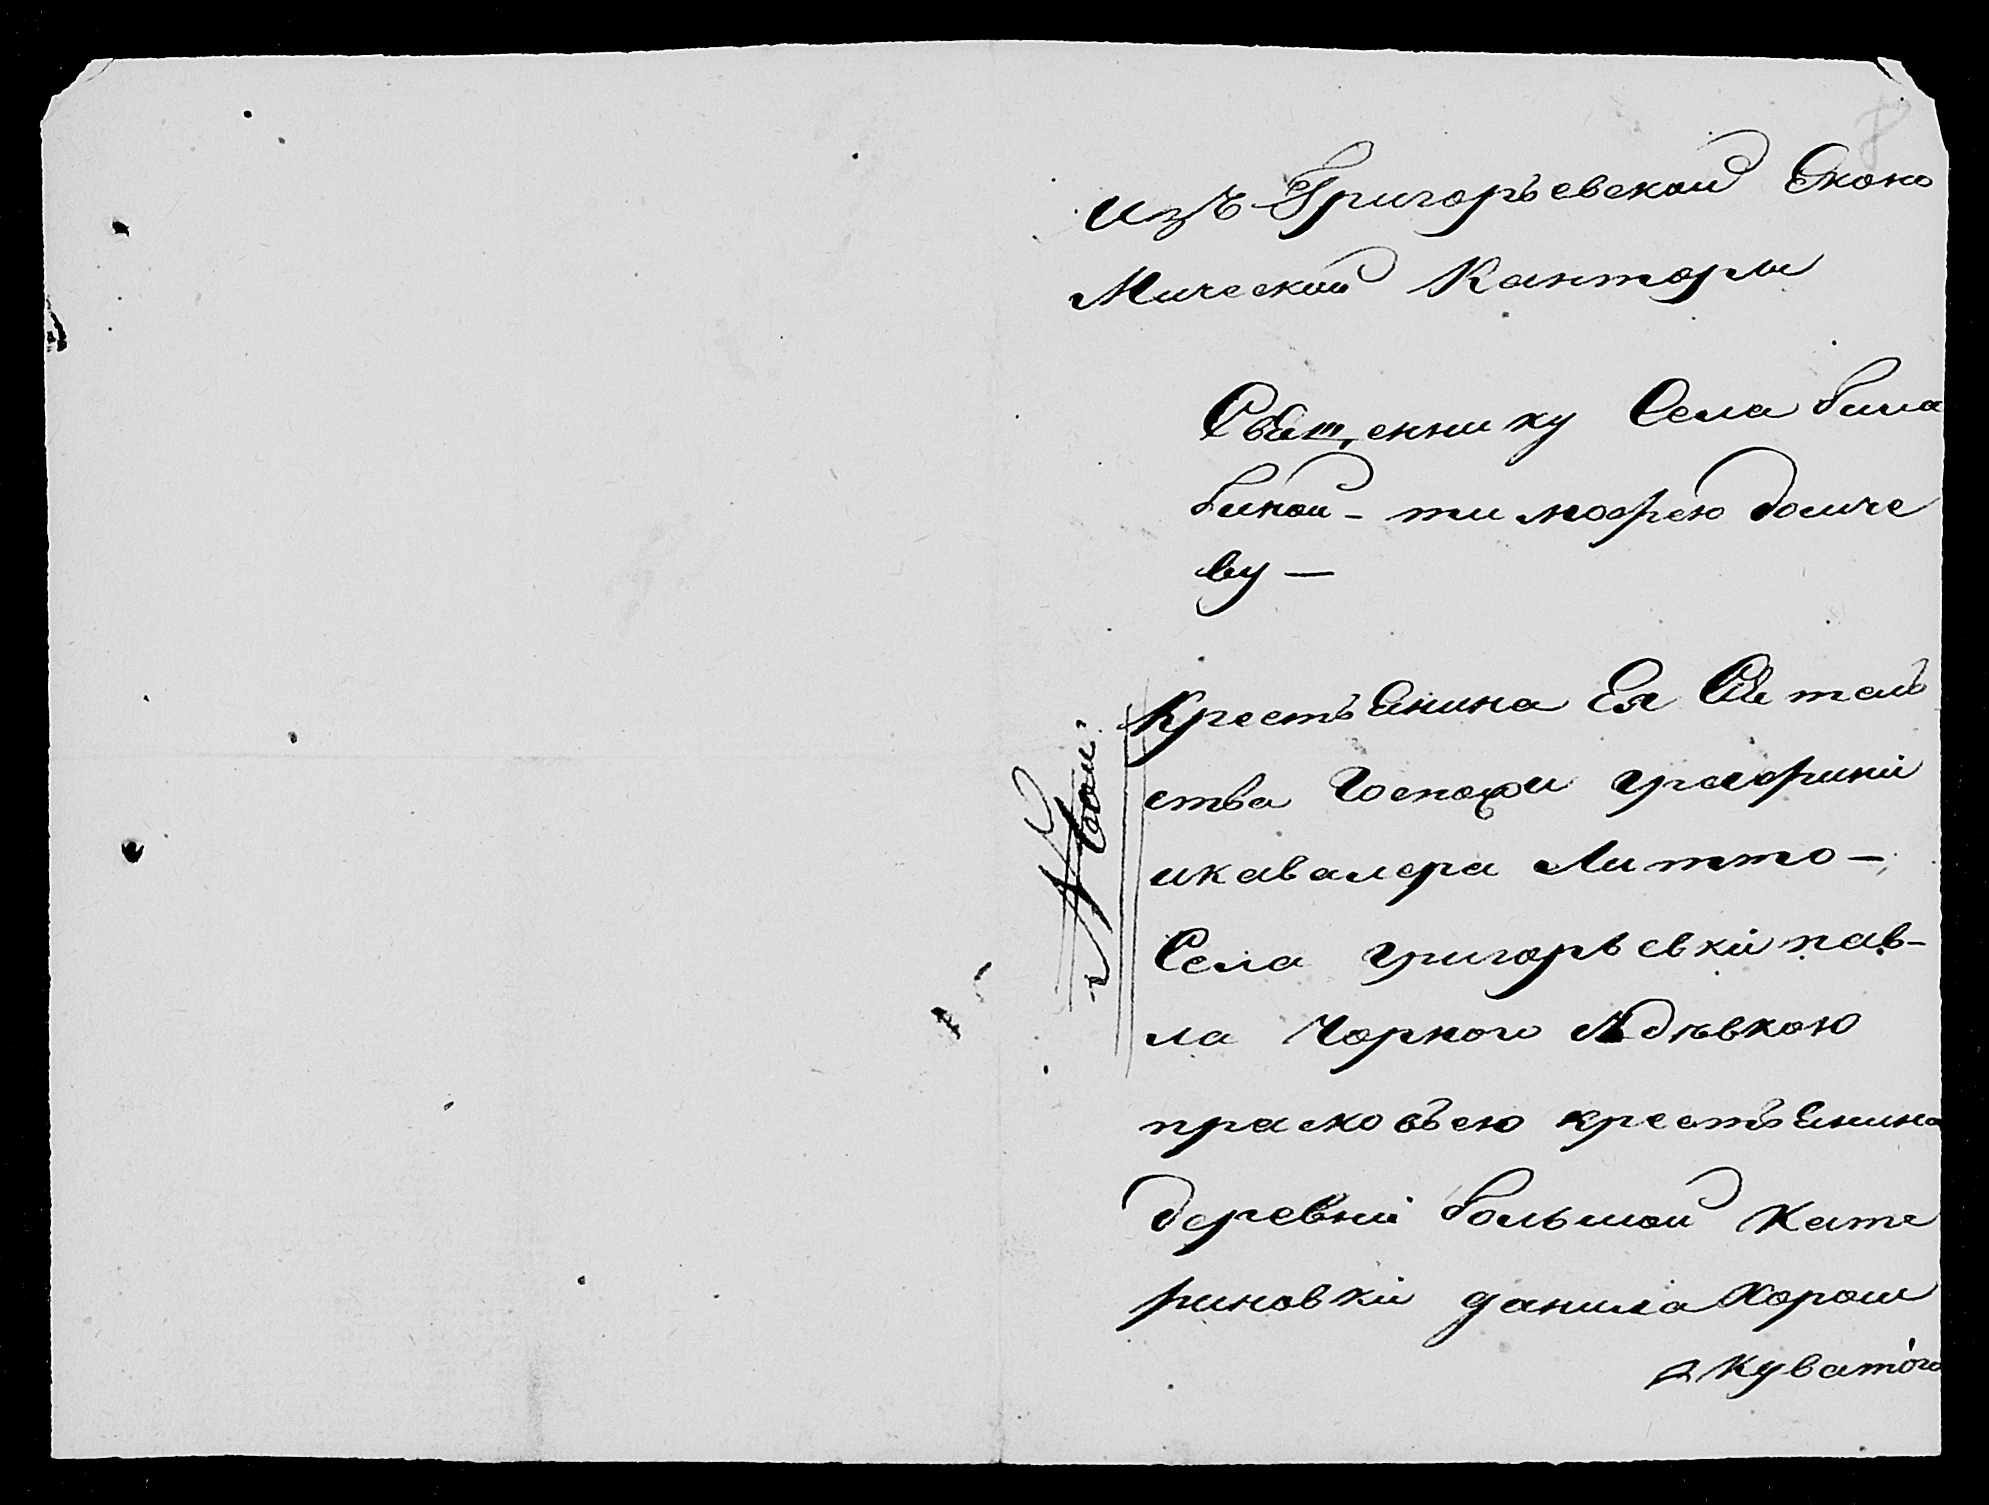 8
Изъ Григорьевской Еконо
Мической Канторы
Свещеннику Села била
биной - тимофею
ву —
Крестьенина Ея Сіятель
ства Госпожи графині
икавалера Литто —
Села григорьевкі пав-
ла Чорного здѣвкою
прасковьею крестьенина
деревні большой Кате
риновкі данила Хорош
куватого